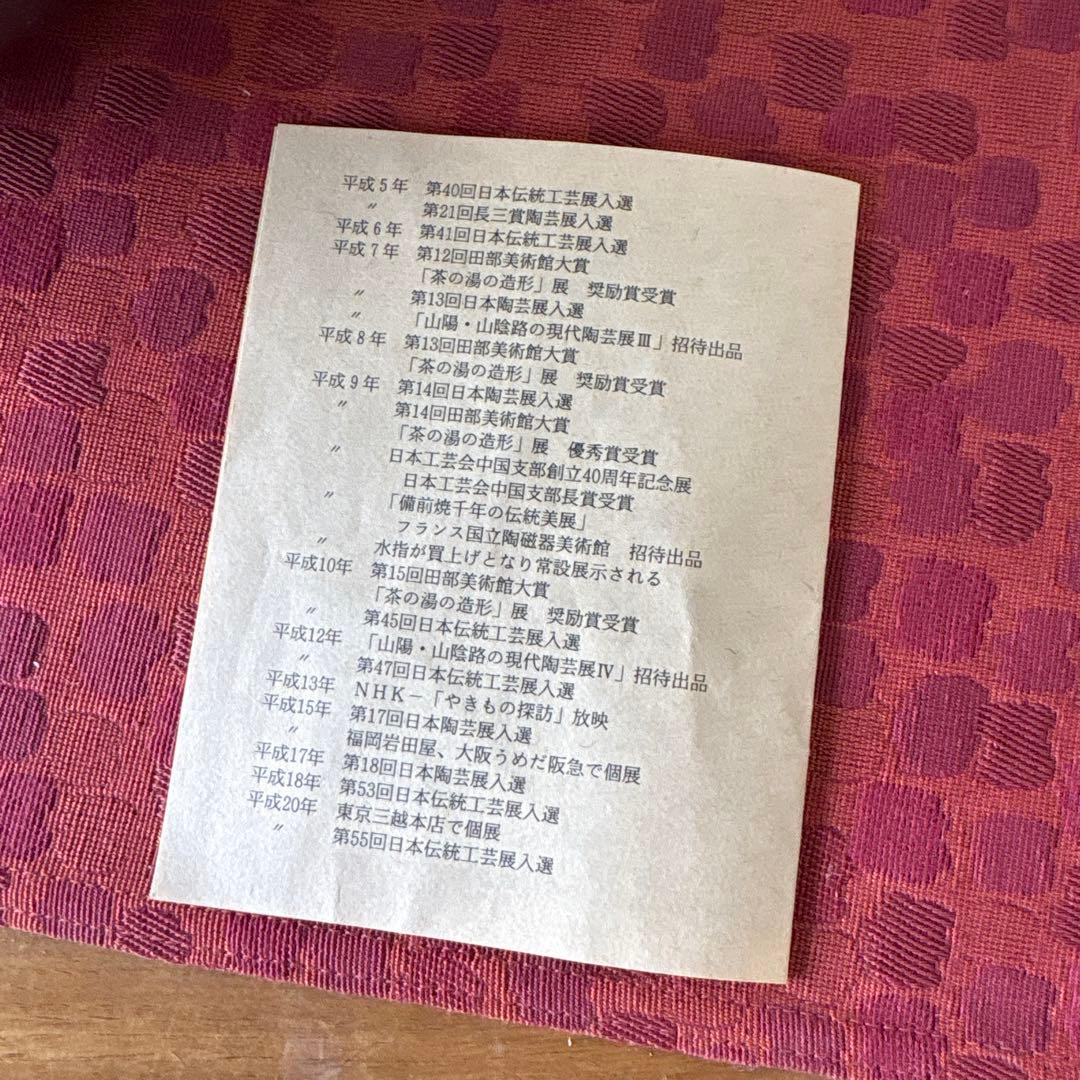 平成5年 第40回日本伝統工芸展入選
〃 第21回長三賞陶芸展入選
平成6年 第41回日本伝統工芸展入選
平成7年 第12回田部美術館大賞
「茶の湯の造形」展 奨励賞受賞
〃 第13回日本陶芸展入選
〃 「山陽・山陰路の現代陶芸展Ⅲ」招待出品
平成8年 第13回田部美術館大賞
「茶の湯の造形」展 奨励賞受賞
平成9年 第14回日本陶芸展入選
〃 第14回田部美術館大賞
「茶の湯の造形」展 優秀賞受賞
〃 日本工芸会中国支部創立40周年記念展
日本工芸会中国支部長賞受賞
〃 「備前焼千年の伝統美展」
フランス国立陶磁器美術館 招待出品
〃 水指が買上げとなり常設展示される
平成10年 第15回田部美術館大賞
「茶の湯の造形」展 奨励賞受賞
〃 第45回日本伝統工芸展入選
平成12年 「山陽・山陰路の現代陶芸展Ⅳ」招待出品
〃 第47回日本伝統工芸展入選
平成13年 NHK－「やきもの探訪」放映
平成15年 第17回日本陶芸展入選
〃 福岡岩田屋、大阪うめだ阪急で個展
平成17年 第18回日本陶芸展入選
平成18年 第53回日本伝統工芸展入選
平成20年 東京三越本店で個展
〃 第55回日本伝統工芸展入選